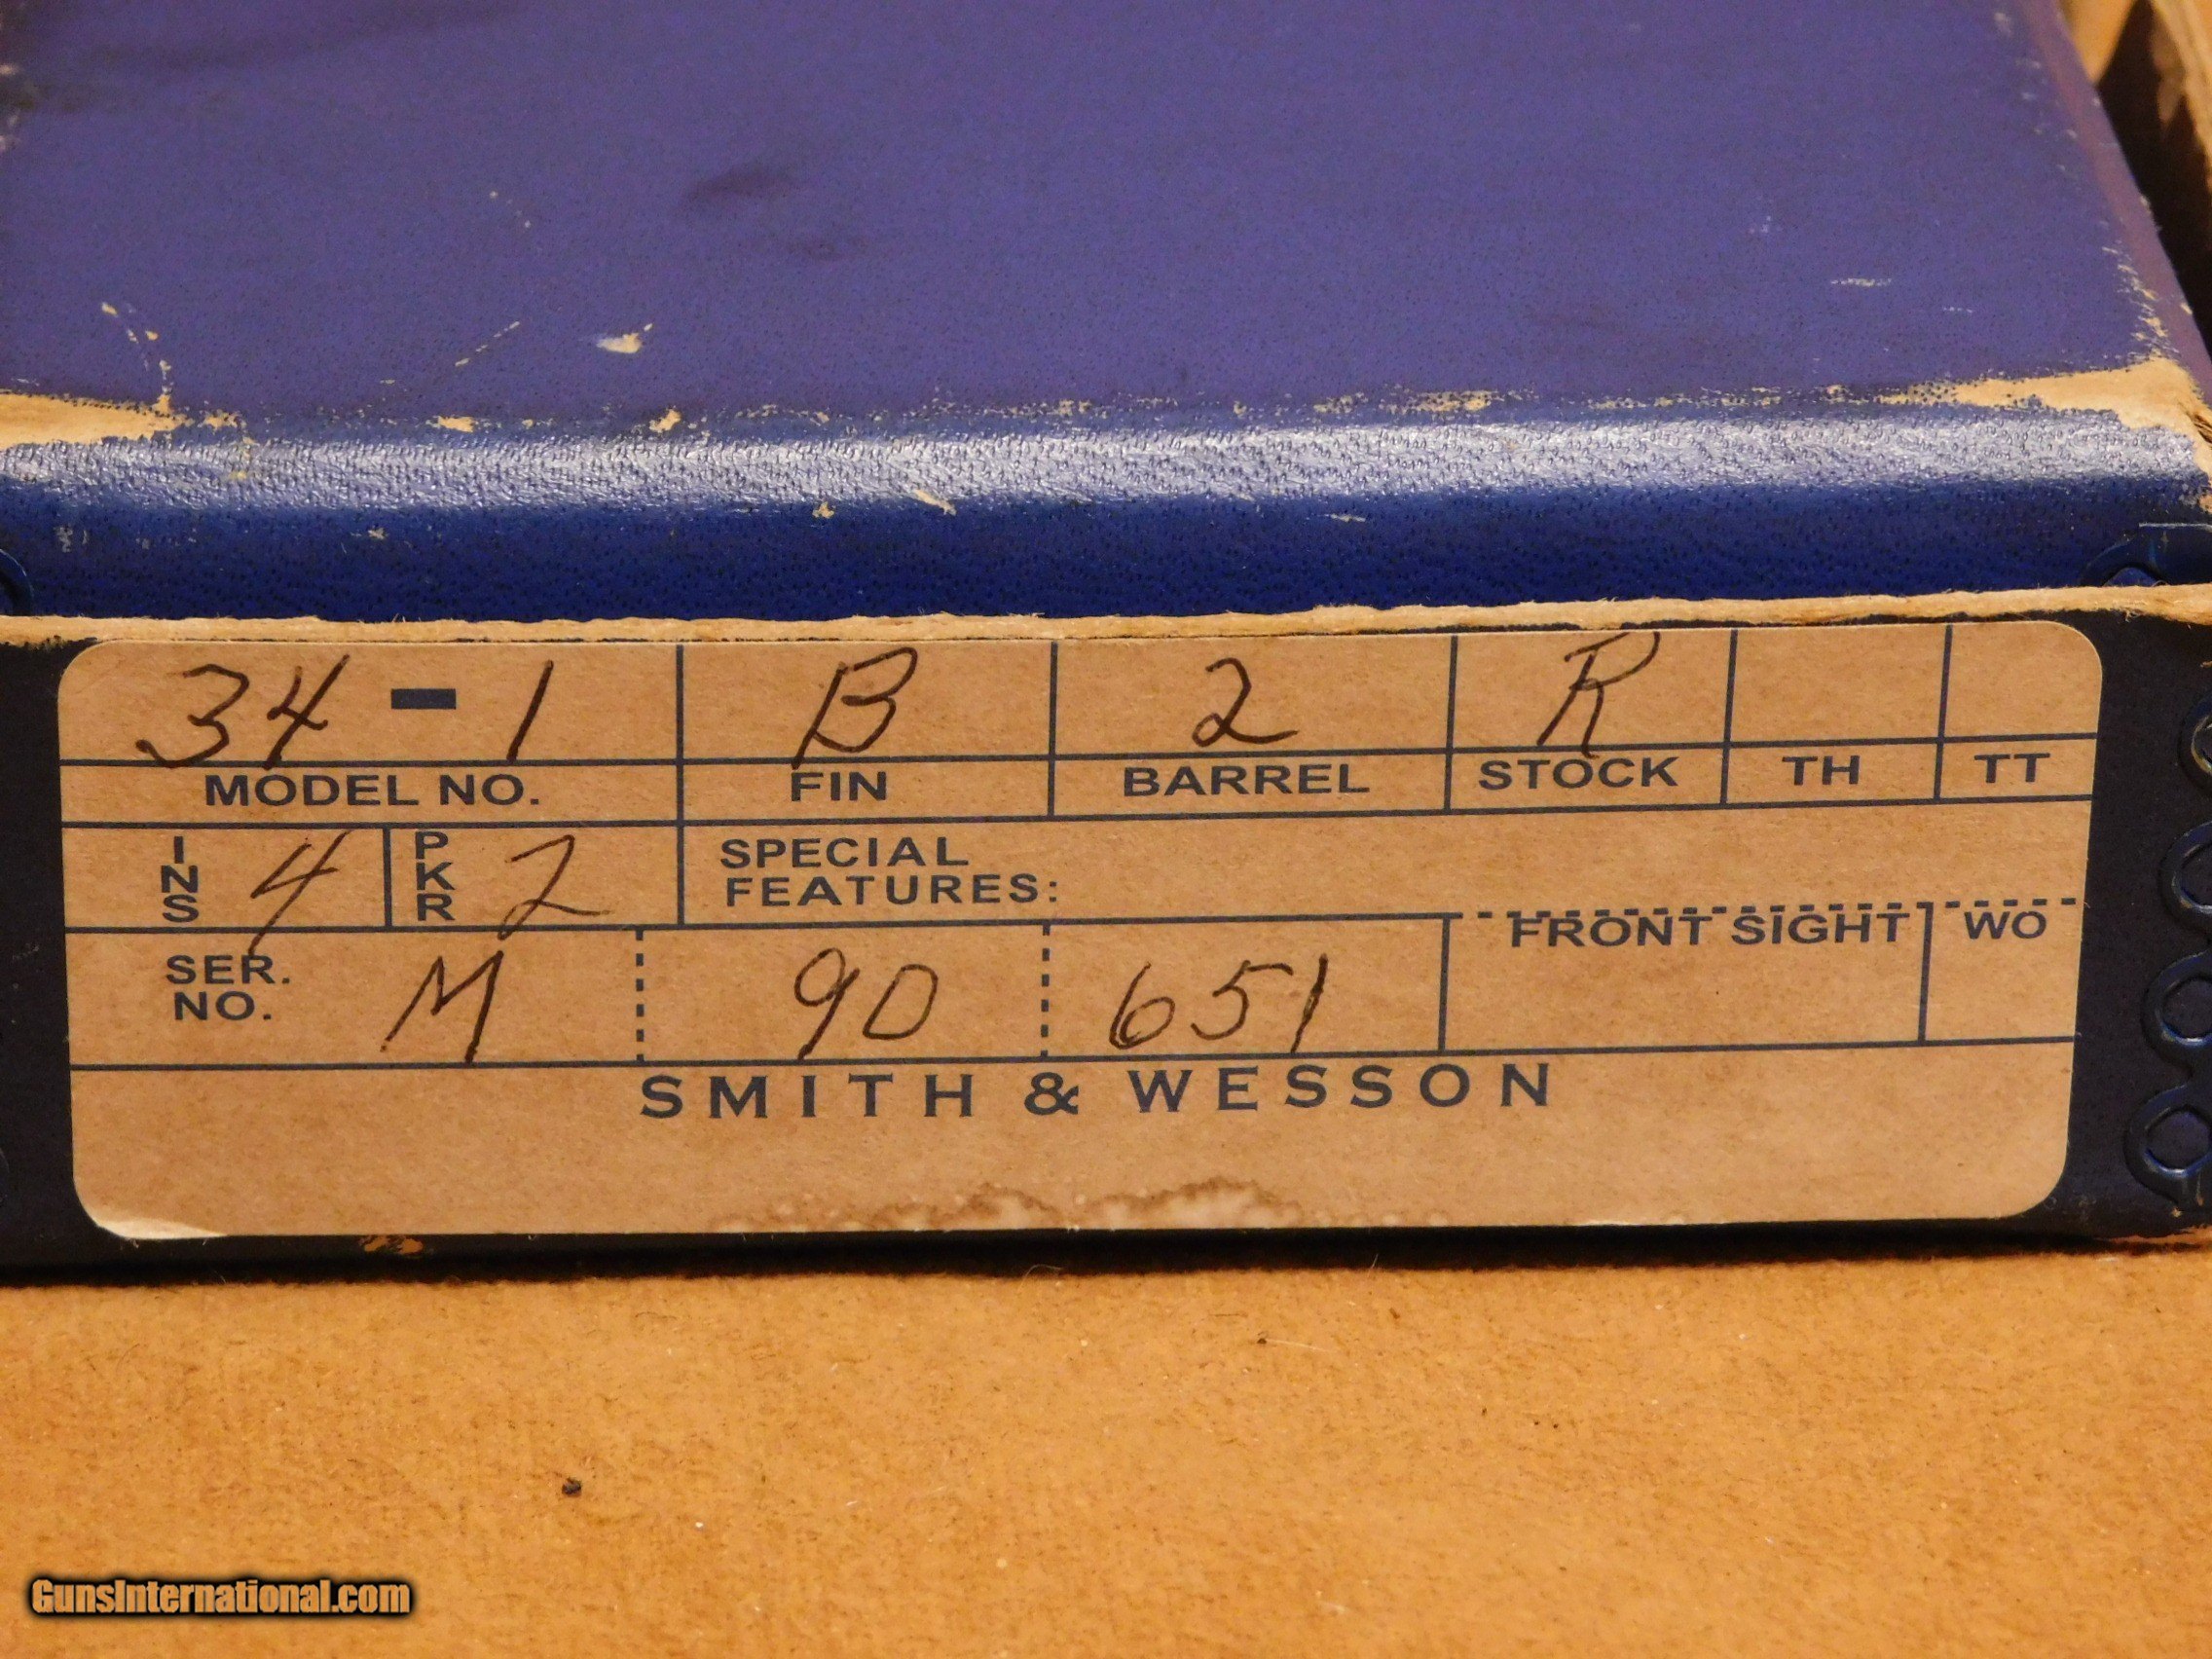 34-1 B 2 R
MODEL NO. FIN BARREL STOCK TH TT
INS 4 PKR 2 SPECIAL
FEATURES:
FRONT SIGHT WO
SER.
NO. M 90 651
SMITH & WESSON
GunsInternational.com